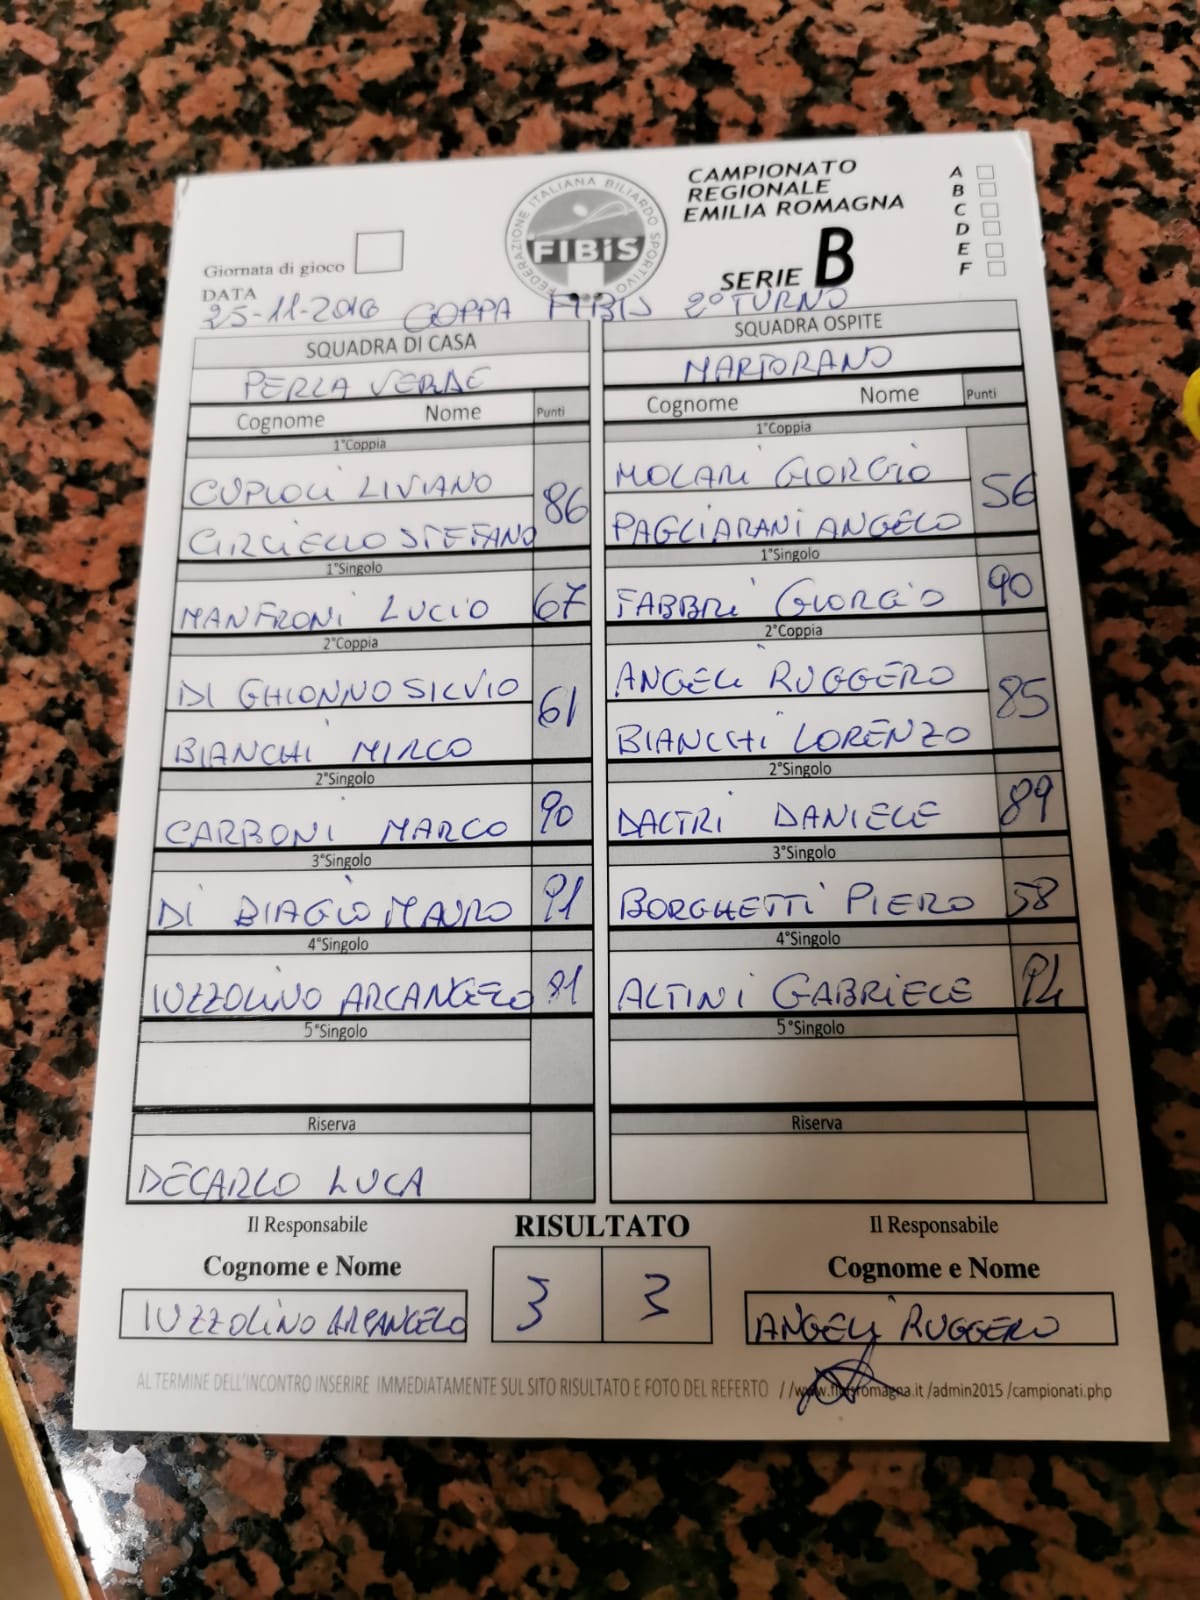 CAMPIONATO
REGIONALE
EMILIA ROMAGNA
SERIE B
A
B
C
D
E
F
FEDERAZIONE ITALIANA BILIARDO SPORTIVO
FIBiS
Giornata di gioco
DATA
25-11-2016 COPPA FIBIS 2° TURNO
SQUADRA DI CASA SQUADRA OSPITE
PERLA VERDE MARTORANO
Cognome Nome Punti Cognome Nome Punti
1°Coppia 1°Coppia
CUPIOLI LIVIANO 86 MOLARI GIORGIO 56
CIRCIELLO STEFANO PAGLIARANI ANGELO
1°Singolo 1°Singolo
MANFRONI LUCIO 67 FABBRI GIORGIO 90
2°Coppia 2°Coppia
DI GHIONNO SILVIO 61 ANGELI RUGGERO 85
BIANCHI MIRCO BIANCHI LORENZO
2°Singolo 2°Singolo
CARBONI MARCO 90 DALTRI DANIELE 89
3°Singolo 3°Singolo
DI BIAGIO MAURO 91 BORGHETTI PIERO 58
4°Singolo 4°Singolo
IUZZOLINO ARCANGELO ALTINI GABRIELE
5°Singolo 5°Singolo
Riserva Riserva
DECARLO LUCA
Il Responsabile RISULTATO Il Responsabile
Cognome e Nome Cognome e Nome
IUZZOLINO ARCANGELO 3 3 ANGELI RUGGERO
AL TERMINE DELL'INCONTRO INSERIRE IMMEDIATAMENTE SUL SITO RISULTATO E FOTO DEL REFERTO //www.fibisromagna.it /admin2015 /campionati.php